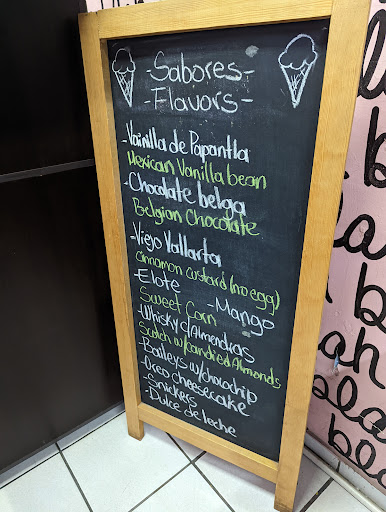 -Sabores-
-Flavors-
-Vainilla de Papantla
Mexican Vanilla bean
-Chocolate belga
Belgian Chocolate
-Viejo Vallarta
cinnamon custard (no egg)
-Elote
Sweet Corn
-Mango
-Whisky c/Almendras
Scotch w/candied Almonds
-Baileys w/chocochip
-Oreo cheesecake
-Snickers
-Dulce de leche